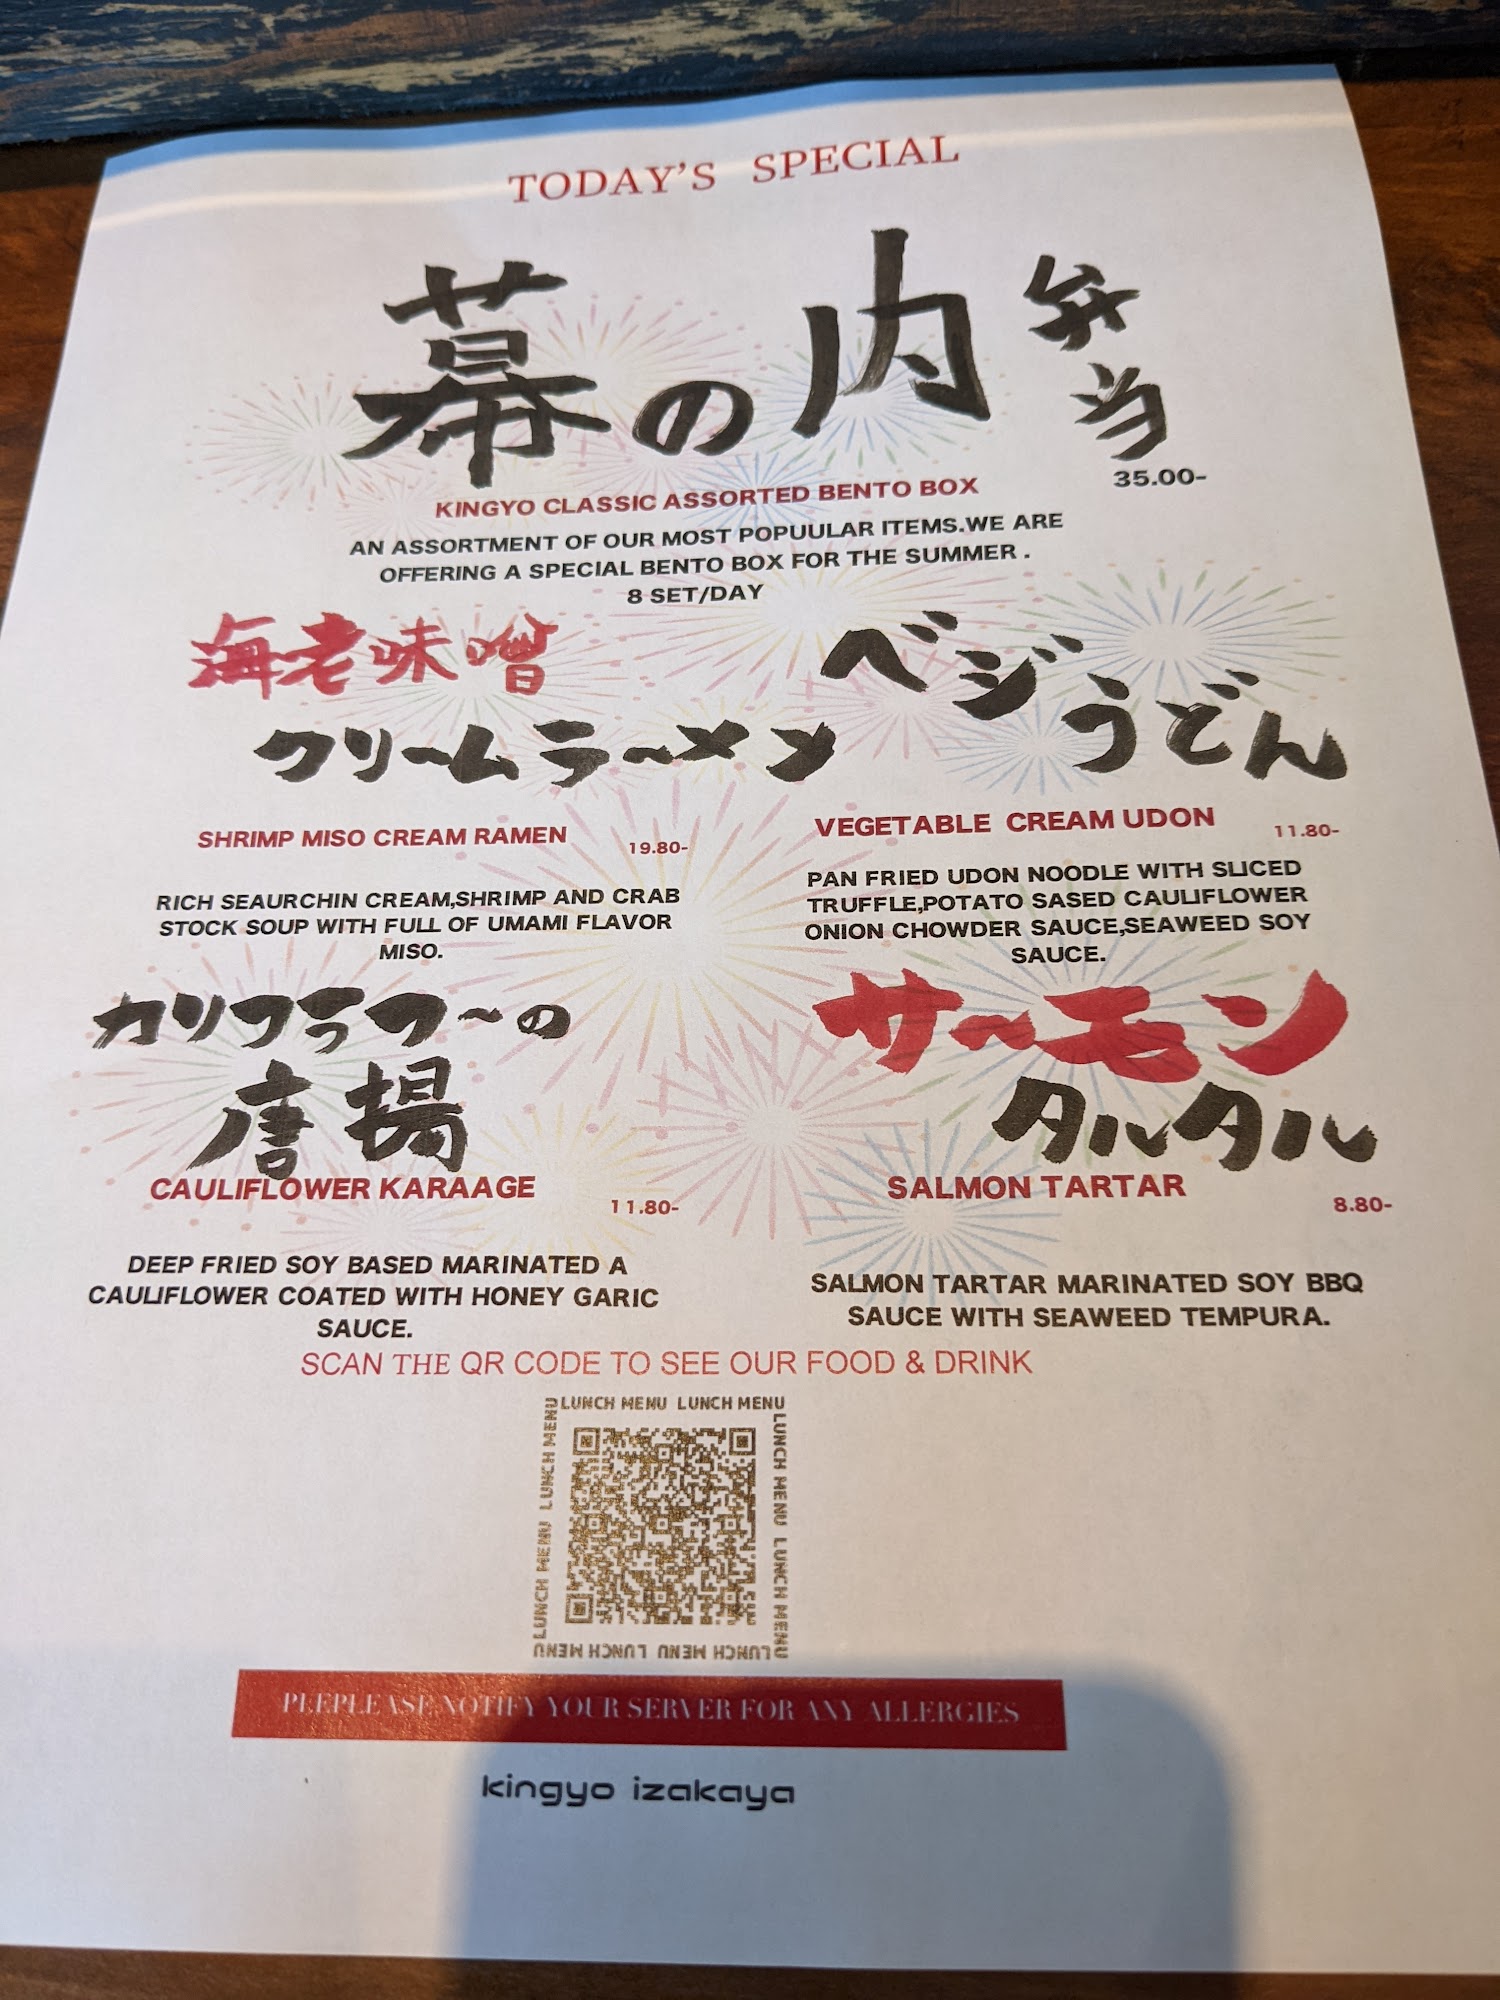 TODAY'S SPECIAL
幕の内弁当
35.00-
KINGYO CLASSIC ASSORTED BENTO BOX
AN ASSORTMENT OF OUR MOST POPUULAR ITEMS.WE ARE
OFFERING A SPECIAL BENTO BOX FOR THE SUMMER .
8 SET/DAY
海老味噌
クリームラーメン
SHRIMP MISO CREAM RAMEN
19.80-
RICH SEAURCHIN CREAM,SHRIMP AND CRAB
STOCK SOUP WITH FULL OF UMAMI FLAVOR
MISO.
ベジうどん
VEGETABLE CREAM UDON
11.80-
PAN FRIED UDON NOODLE WITH SLICED
TRUFFLE,POTATO SASED CAULIFLOWER
ONION CHOWDER SAUCE,SEAWEED SOY
SAUCE.
カリフラワーの
唐揚
CAULIFLOWER KARAAGE
11.80-
DEEP FRIED SOY BASED MARINATED A
CAULIFLOWER COATED WITH HONEY GARIC
SAUCE.
サーモン
タルタル
SALMON TARTAR
8.80-
SALMON TARTAR MARINATED SOY BBQ
SAUCE WITH SEAWEED TEMPURA.
SCAN THE QR CODE TO SEE OUR FOOD & DRINK
LUNCH MENU LUNCH MENU
LUNCH MENU LUNCH MENU
LUNCH MENU LUNCH MENU
LUNCH MENU LUNCH MENU
PLEPLEASE NOTIFY YOUR SERVER FOR ANY ALLERGIES
kingyo izakaya